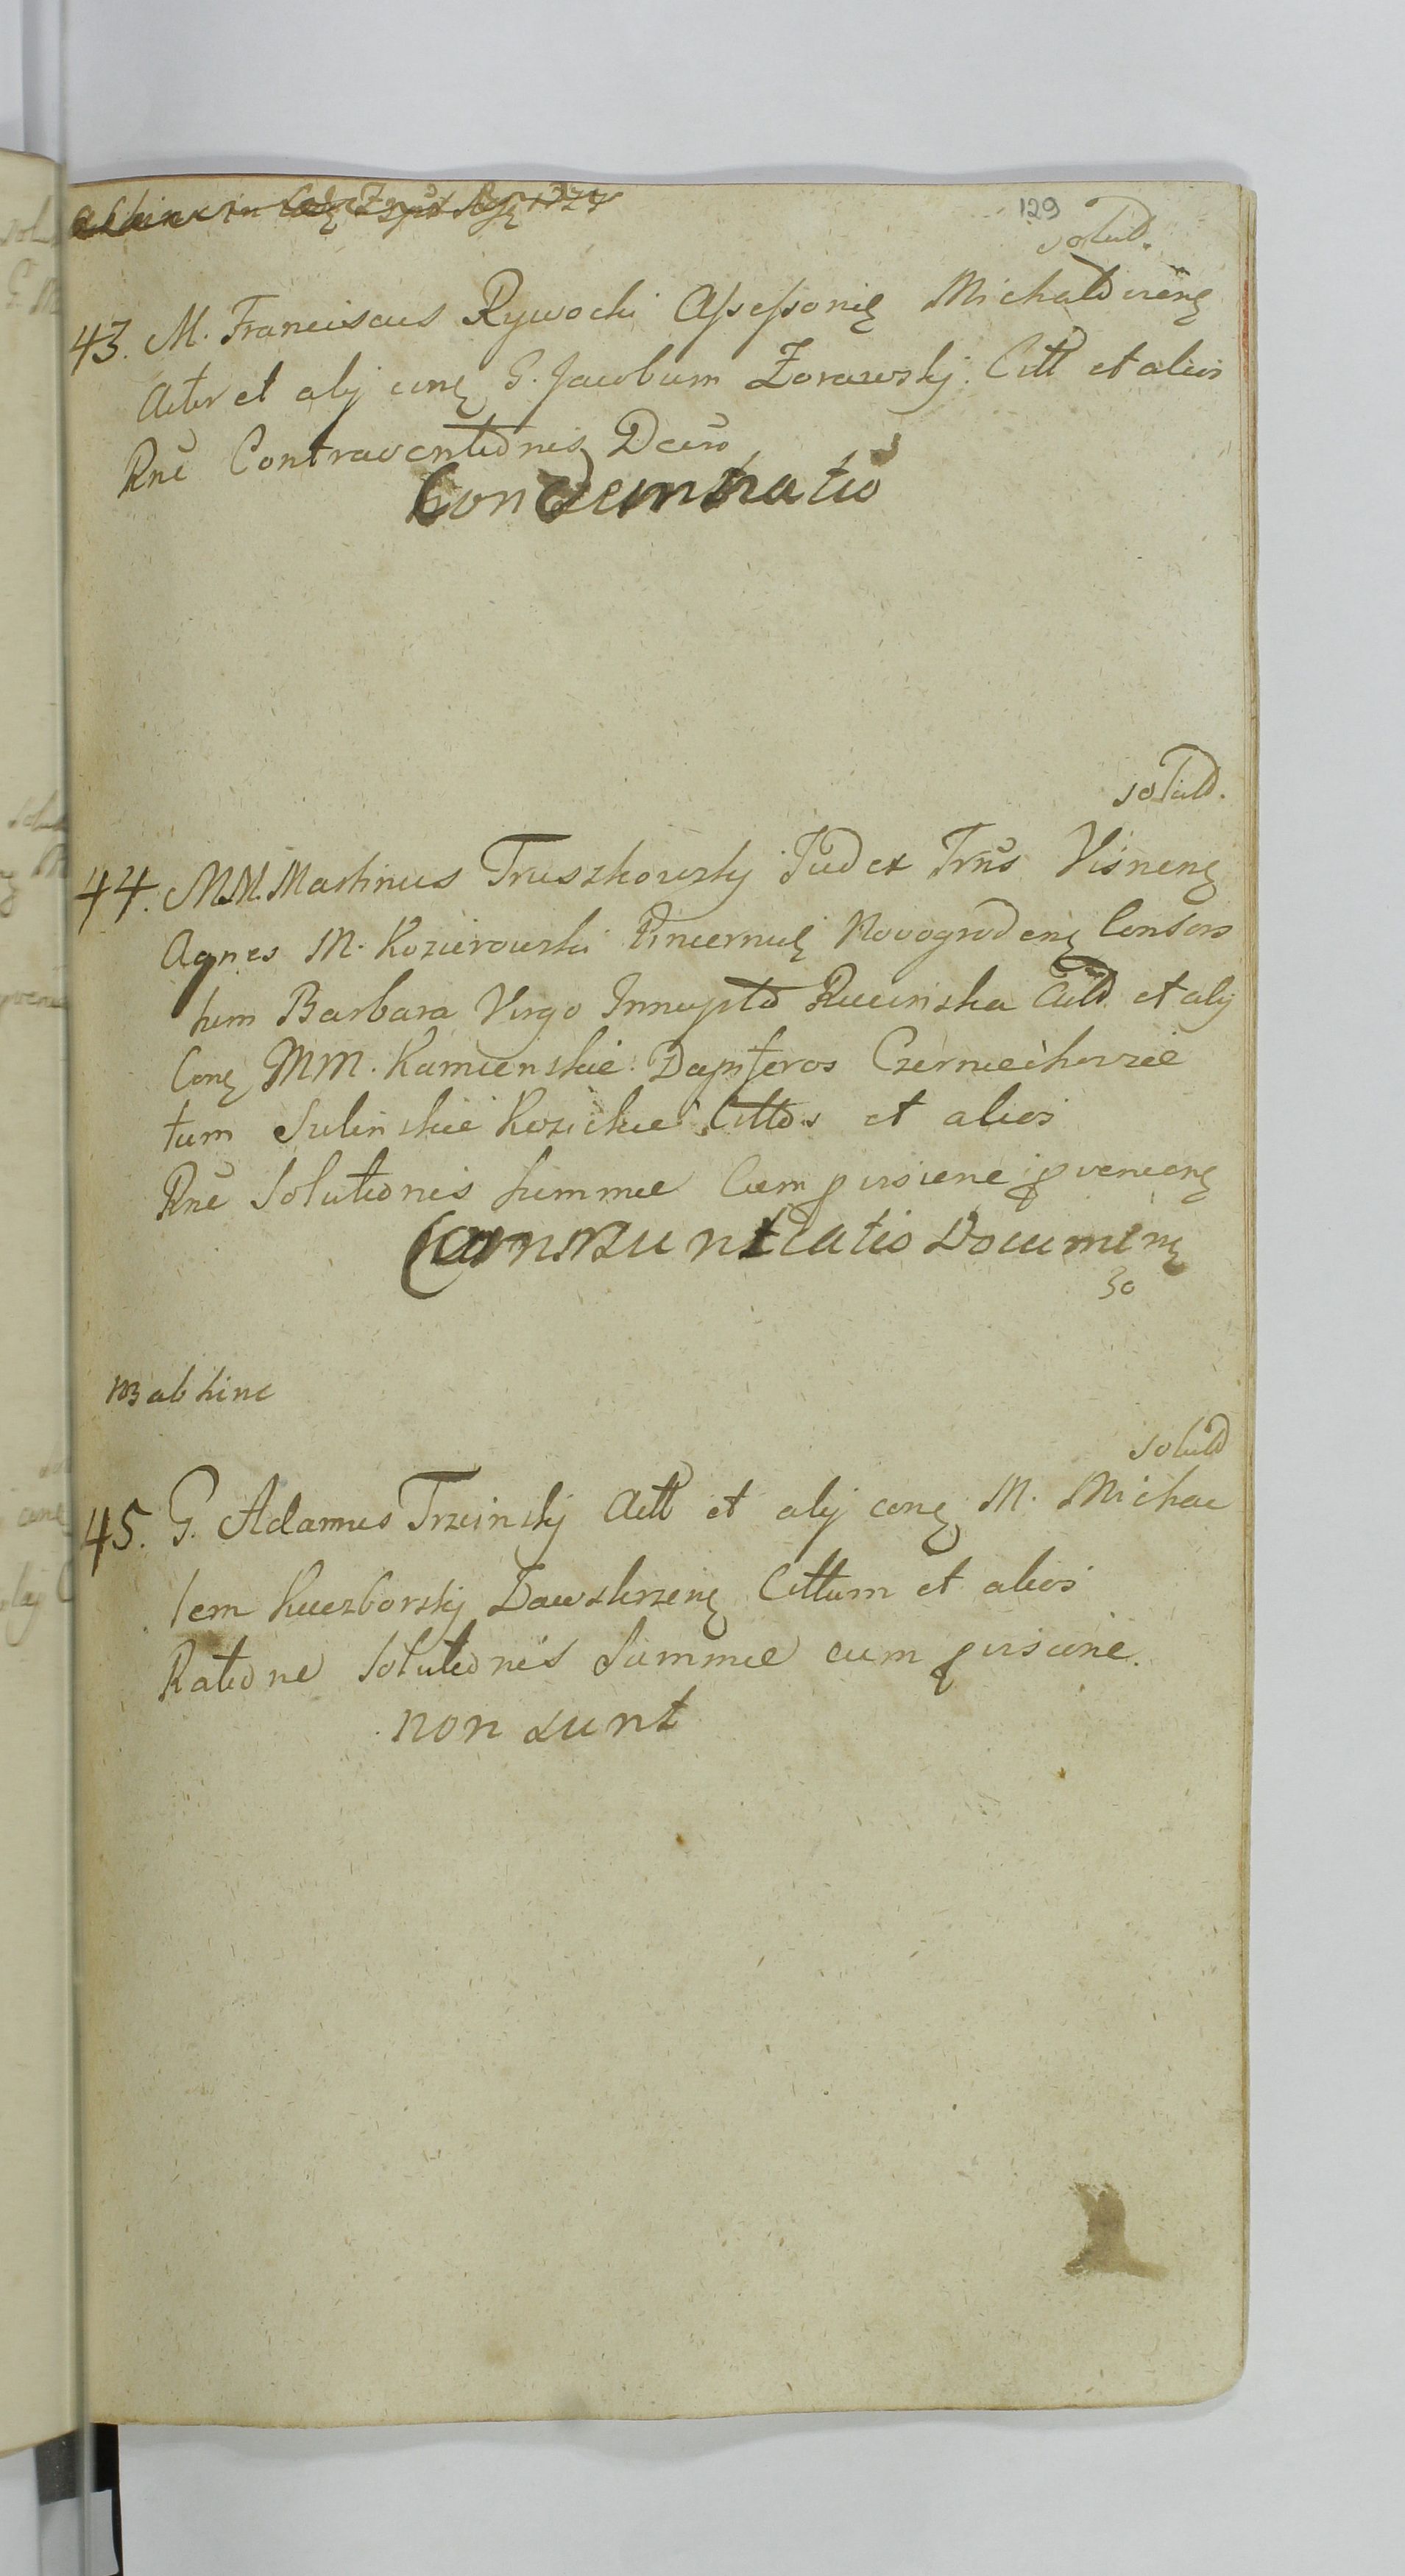 129
solut.
43. M. Franciscus Rywocki Assessonię Michałovienę
Actor et alij conę G. Jacobum Zorawskj. Citt et alios
Rne Contraventionis Decro
Condemnatio
solut.
44. MM. Martinus Truszkowskj Judex Trris Visnenę
Agnes M. Kozierowski Pincernię Novogrodenę Consors
tum Barbara Virgo Innupta Rucinska Actt et alij
Conę MM. Kamienskie Dapiferos Czerniechovzie
tum Sulinskie Kozickie Cittos et alios
Rne Solutionis summae Cum provisione provenienę
Communicatio Documenę
30
m3 abhinc
solut
45. G. Adamus Trzcinskj Actt et alij conę M. Michae
lem Kuczborskj Dawskrzenę Cittum et alios
Ratione Solutionis Summae cum provisione.
non sunt